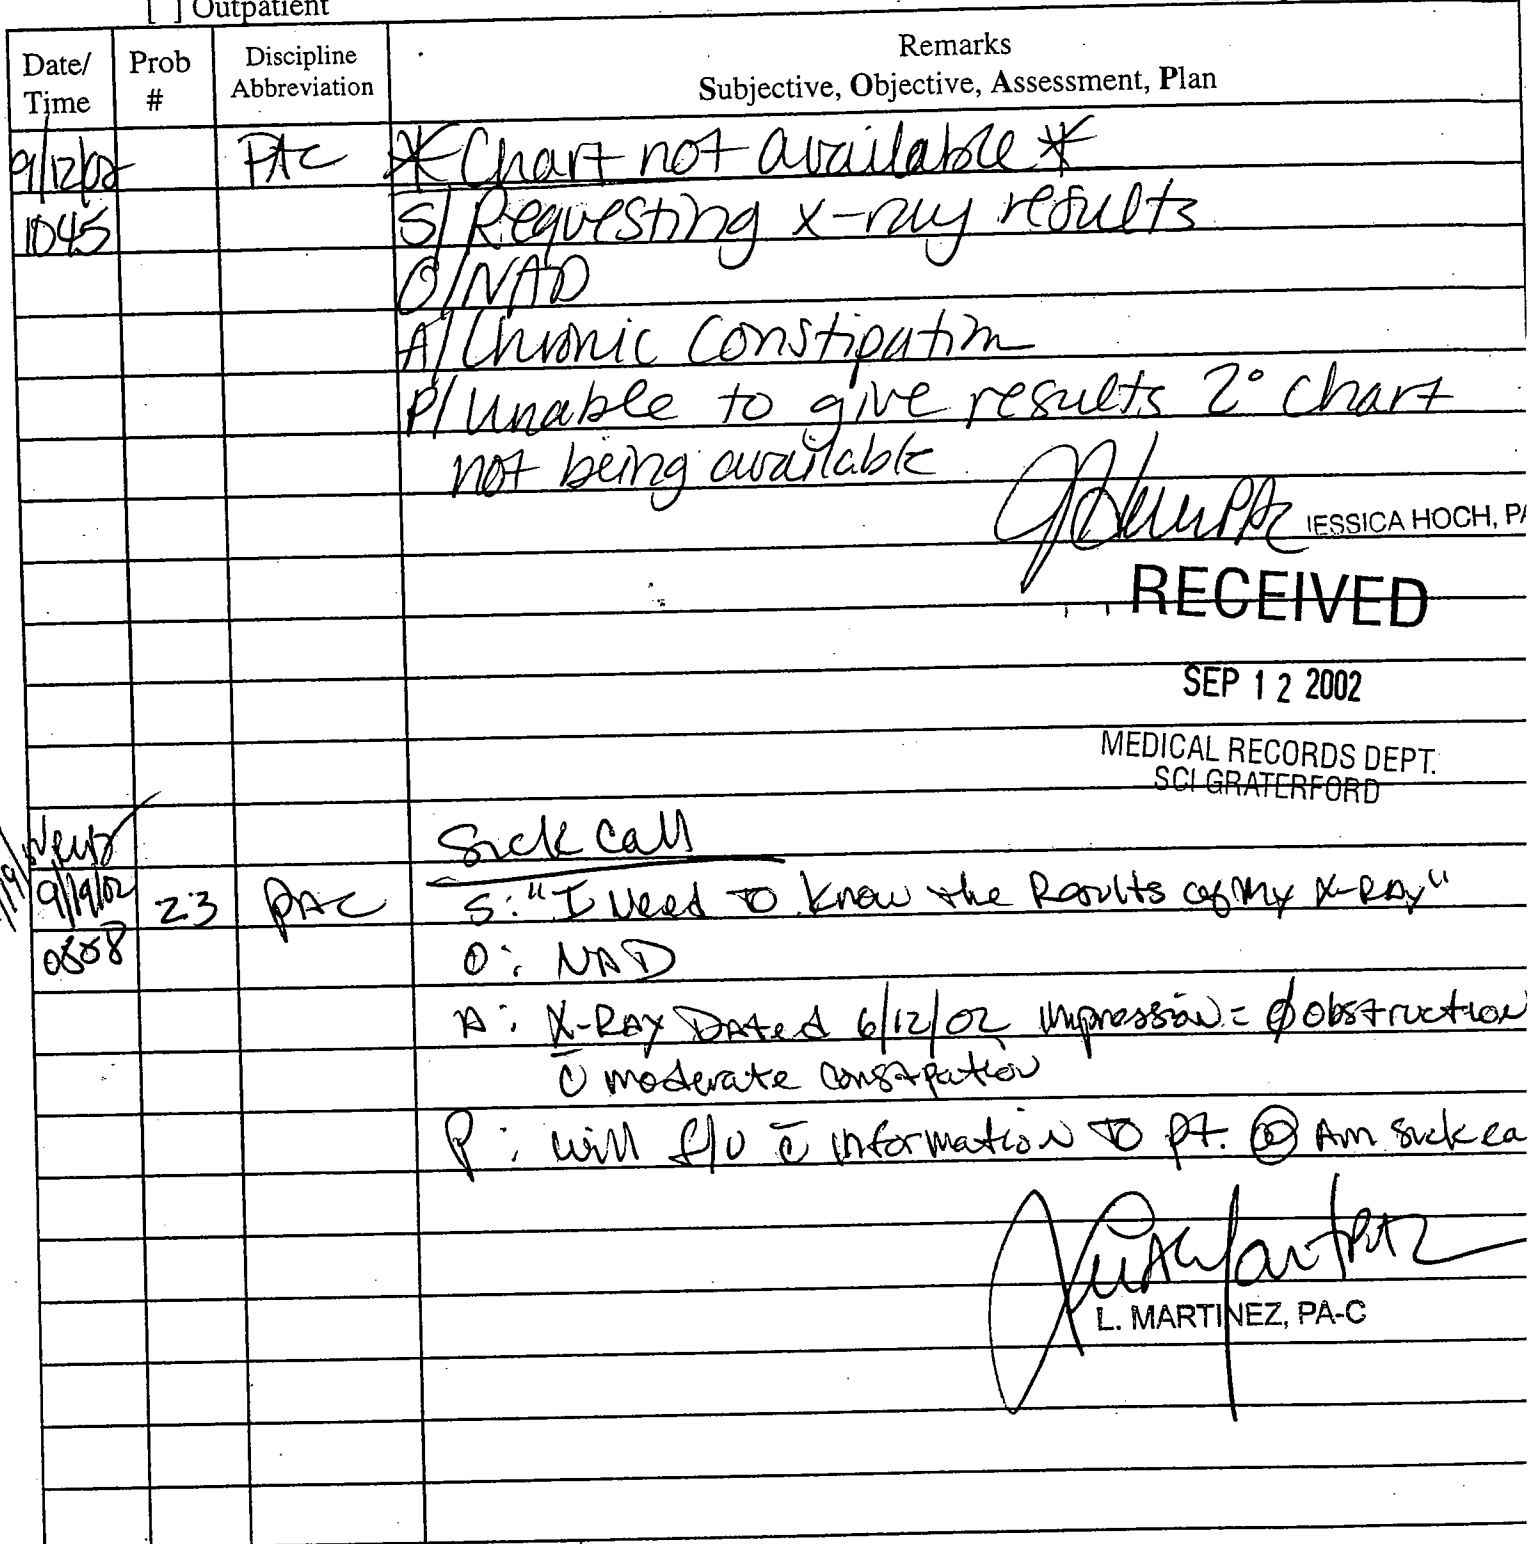 [ ] Outpatient
Date/ Time
Prob #
Discipline Abbreviation
Remarks
Subjective, Objective, Assessment, Plan
9/12/02 PAC *Chart not available*
1045 S/ Requesting x-ray results
O/ NAD
A/ Chronic Constipation
P/ Unable to give results 2° chart
not being available
PAC JESSICA HOCH, PA
RECEIVED
SEP 12 2002
MEDICAL RECORDS DEPT.
SCI GRATERFORD
Sick Call
9/19/02 23 PAC S: "I Need to know the Results of My X-RAY"
0858 O: NAD
A: X-RAY Dated 6/12/02 impression = ∅ obstruction
c̄ moderate constipation
P: will f/u c̄ information to pt. @ AM sick ca
L. MARTINEZ, PA-C